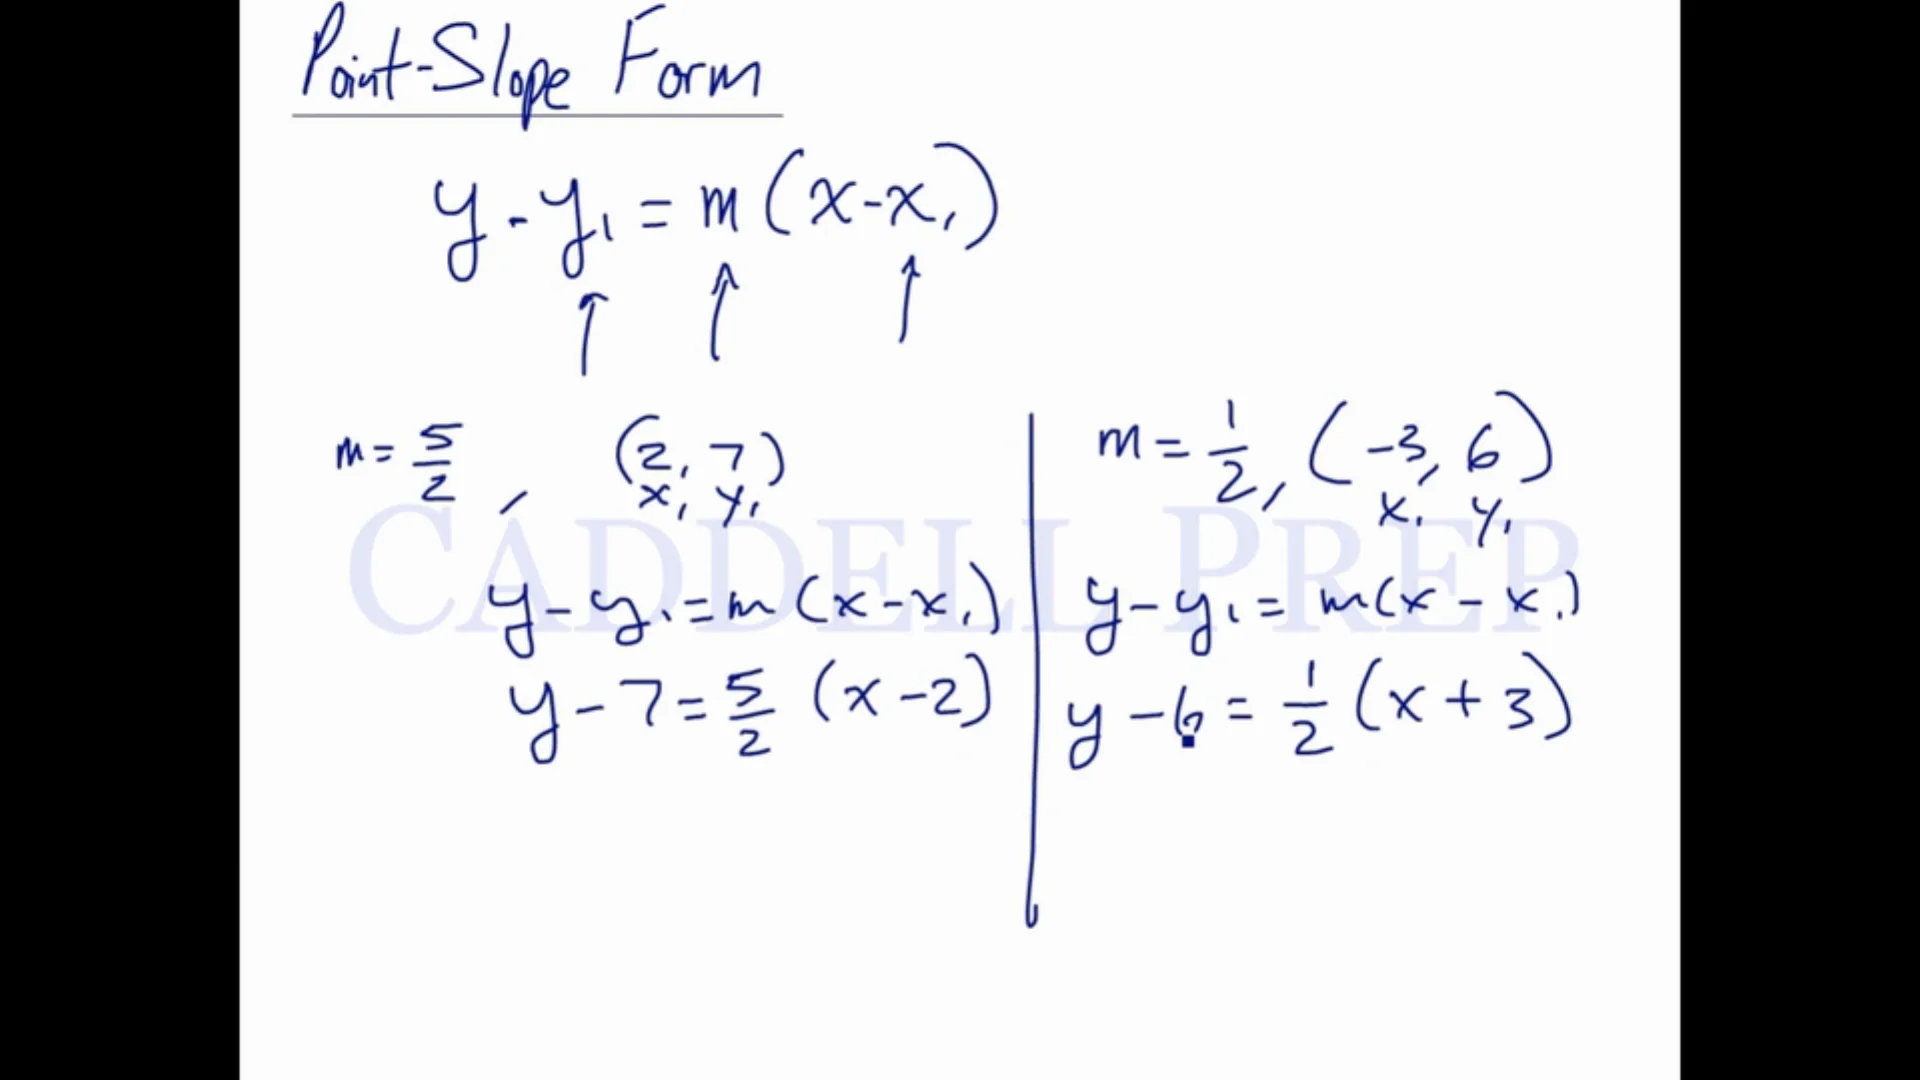 Point-Slope Form
y - y₁ = m(x - x₁)
m = 5/2, (2, 7)
x₁ y₁
y - y₁ = m(x - x₁)
y - 7 = 5/2 (x - 2)
m = 1/2, (-3, 6)
x₁ y₁
y - y₁ = m(x - x₁)
y - 6 = 1/2 (x + 3)
CADDELL PREP